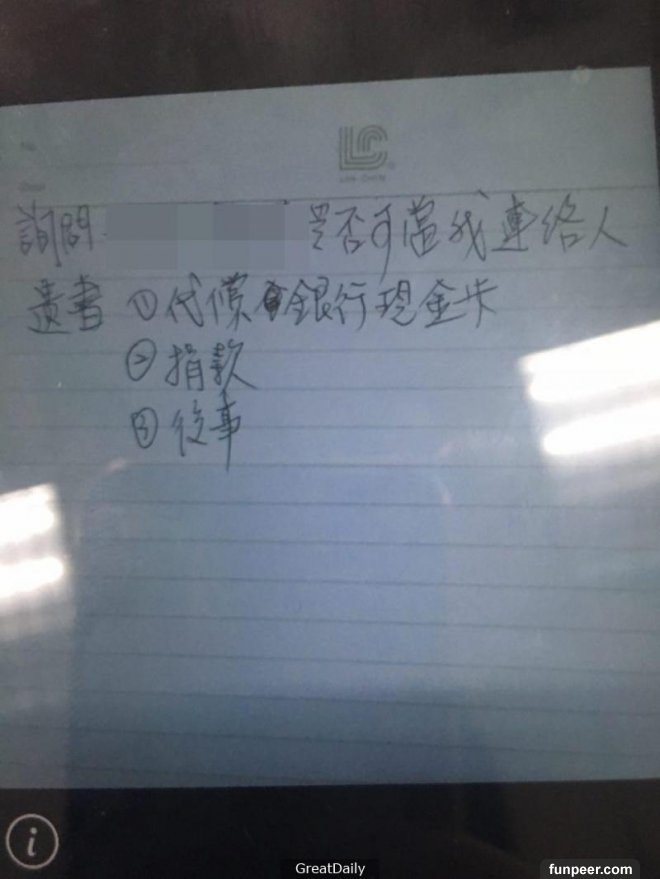 詢問 是否可當我連絡人
遺書 ①代償銀行現金卡
②捐款
③後事
GreatDaily
funpeer.com